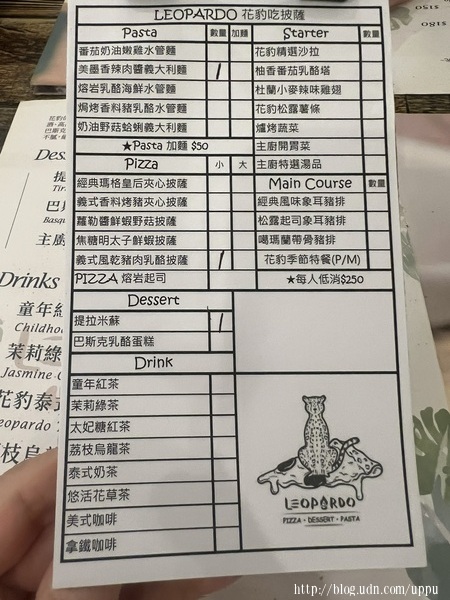 LEOPARDO 花豹吃披薩
Pasta 數量 加麵
番茄奶油嫩雞水管麵
美墨香辣肉醬義大利麵
熔岩乳酪海鮮水管麵
焗烤香料豬乳酪水管麵
奶油野菇蛤蜊義大利麵
★Pasta 加麵 $50
Pizza 小 大
經典瑪格皇后夾心披薩
義式香料烤豬夾心披薩
蘿勒醬鮮蝦野菇披薩
焦糖明太子鮮蝦披薩
義式風乾豬肉乳酪披薩
PIZZA 熔岩起司
Dessert
提拉米蘇
巴斯克乳酪蛋糕
Drink
童年紅茶
茉莉綠茶
太妃糖紅茶
荔枝烏龍茶
泰式奶茶
悠活花草茶
美式咖啡
拿鐵咖啡
Starter 數量
花豹精選沙拉
柚香番茄乳酪塔
杜蘭小麥辣味雞翅
花豹松露薯條
爐烤蔬菜
主廚開胃菜
主廚特選湯品
Main Course 數量
經典風味象耳豬排
松露起司象耳豬排
噶瑪蘭帶骨豬排
花豹季節特餐(P/M)
★每人低消$250
LEOPARDO
PIZZA・DESSERT・PASTA
Des
提
Tir
巴
Basqu
主廚
Drinks
童年紅
Childhoo
茉莉綠
Jasmine G
花豹泰式
Leopardo
枝烏
$150
http://blog.udn.com/uppu